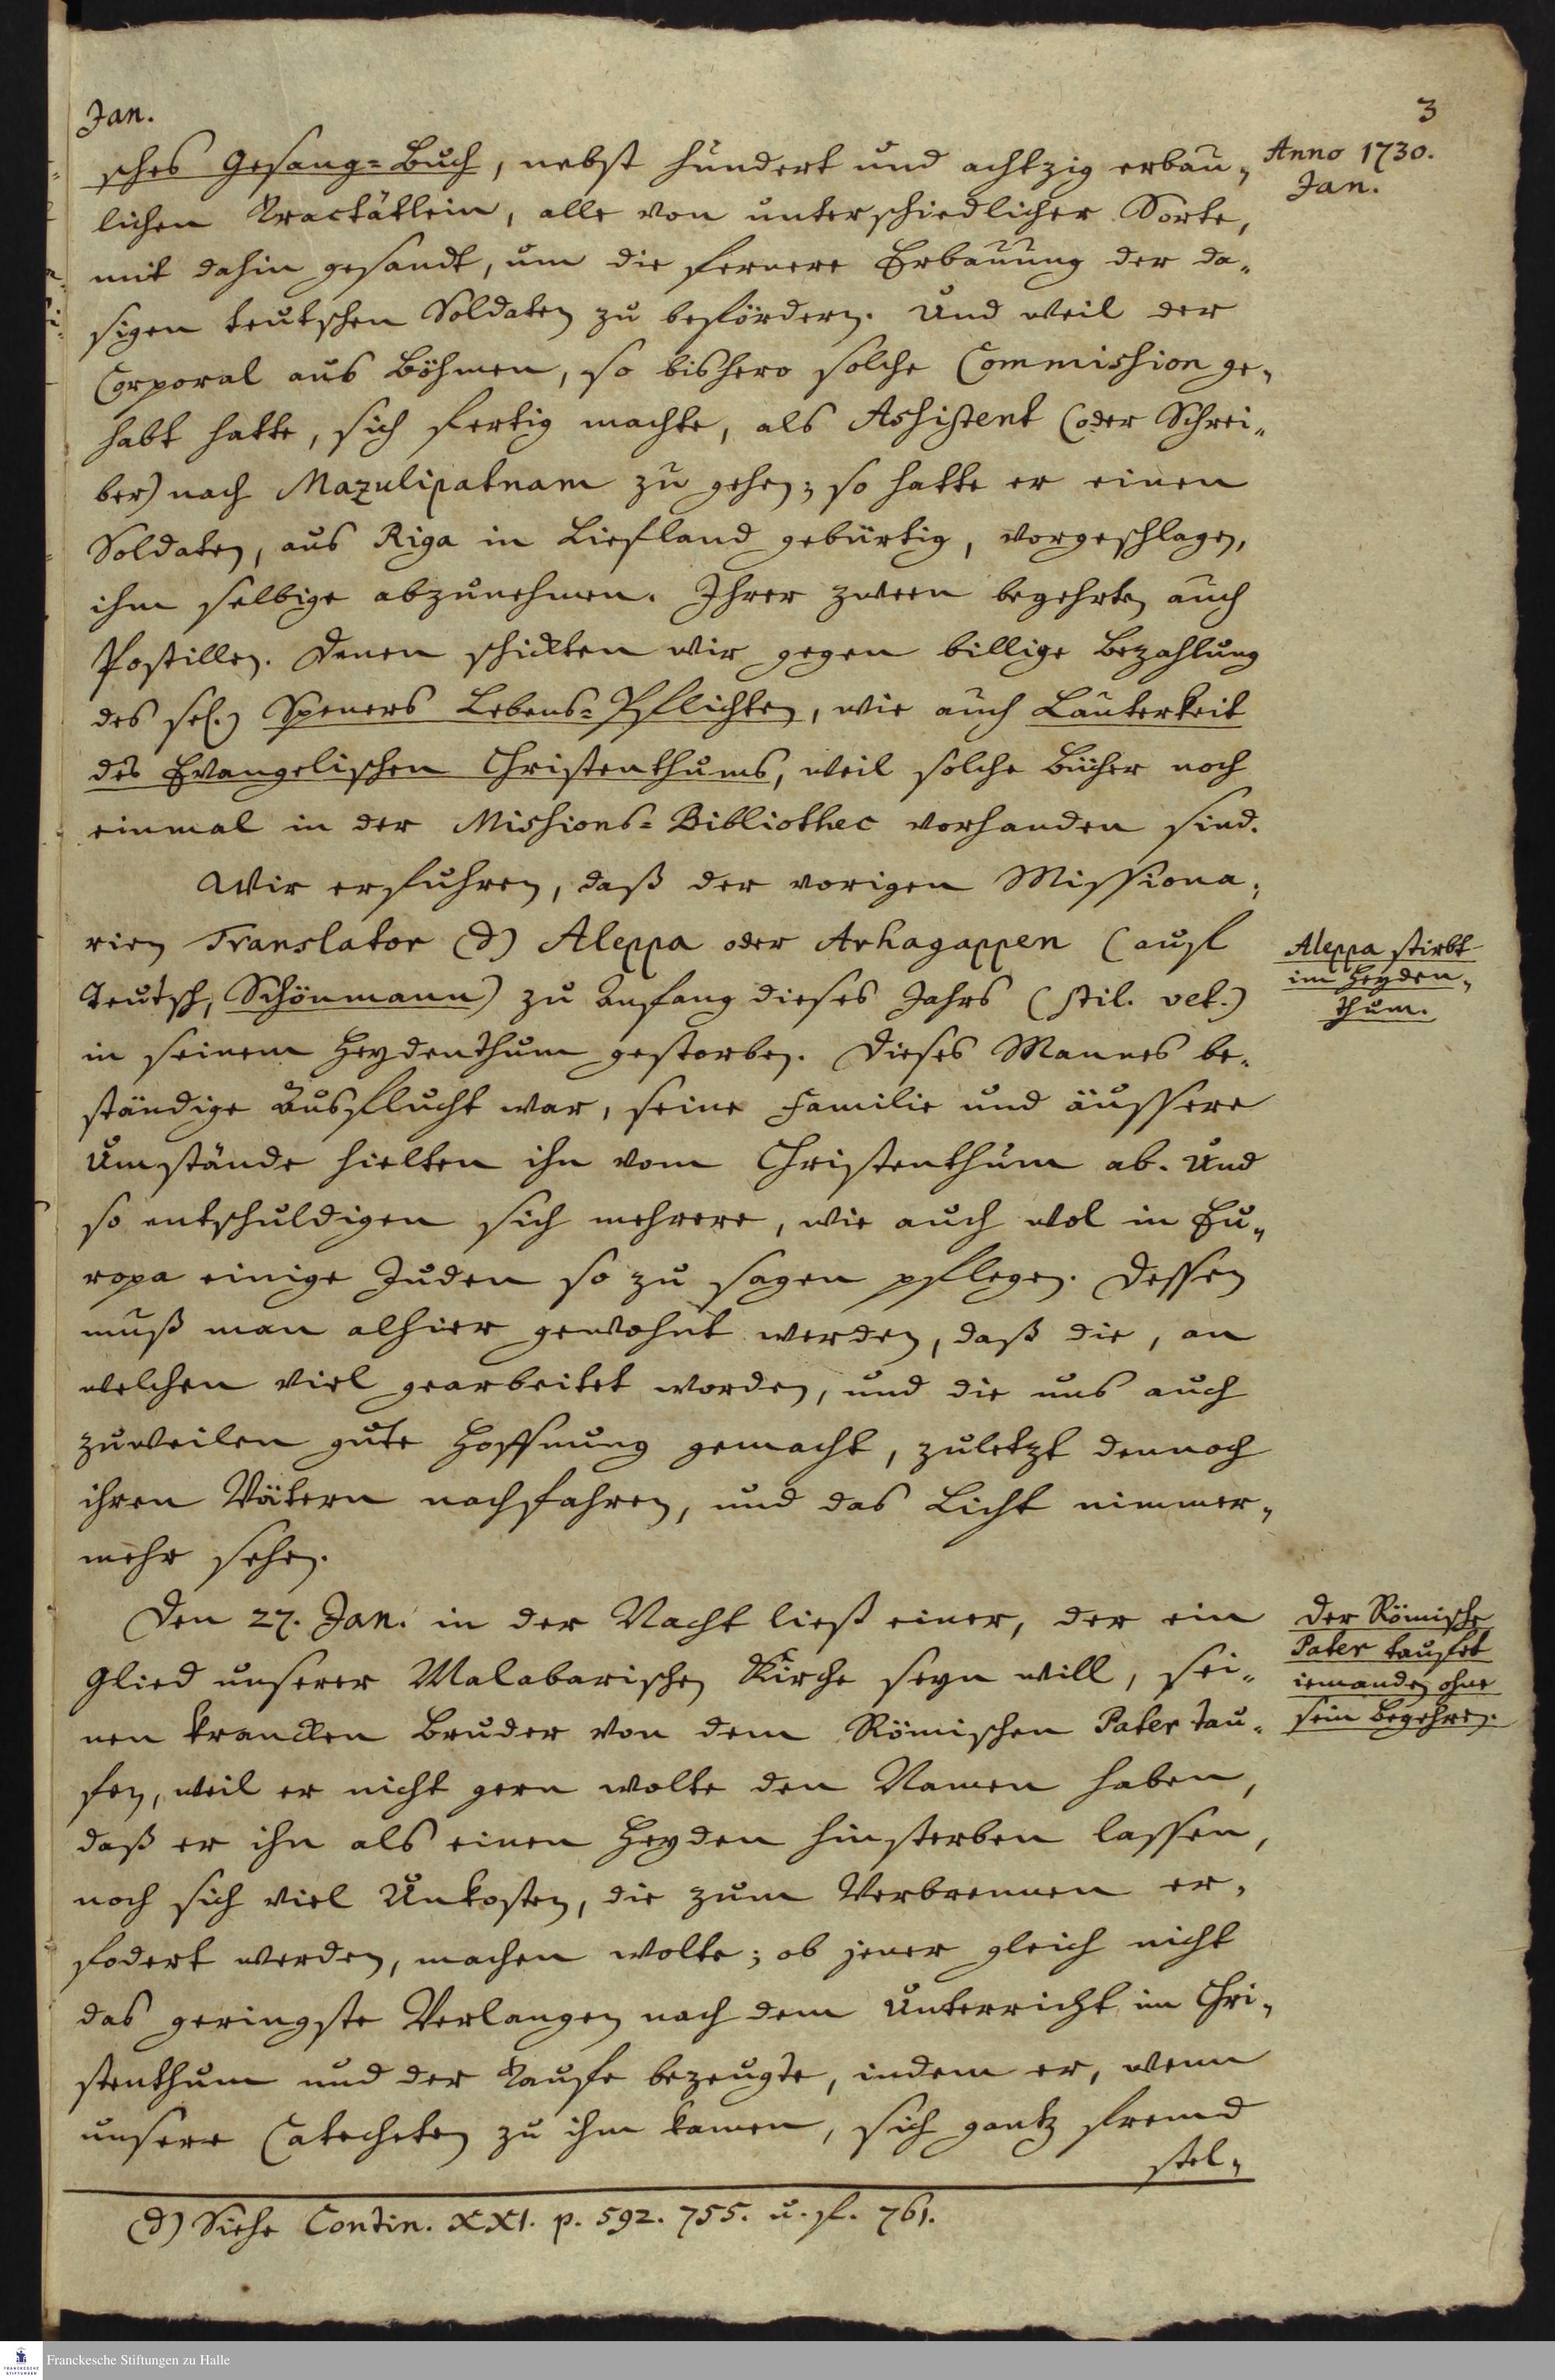 Jan.
3
Anno 1730.
Jan.
sches Gesang=Buch, nebst hundert und achtzig erbau„
lichen Tractätlein, alle von unterschiedlicher Sorte,
mit dahin gesandt, um die fernere Erbauung der da„
sigen teutschen Soldaten zu befördern. Und weil der
Corporal aus Böhmen, so bishero solche Commission ge„
habt hatte, sich fertig machte, als Assistent (oder Schrei„
ber) nach Mazulipatnam zu gehen; so hatte er einen
Soldaten, aus Riga in Liefland gebürtig, vorgeschlagen,
ihm selbige abzunehmen. Ihrer zween begehrten auch
Postillen. Denen schickten wir gegen billige Bezahlung
des sel. Speners Lebens=Pflichten, wie auch Lauterkeit
des Evangelischen Christenthums, weil solche Bücher noch
einmal in der Missions=Bibliothec vorhanden sind.
Wir erfuhren, daß der vorigen Missiona„
rien Translator (d) Aleppa oder Arhagappen (auf
Teutsch, Schönmann) zu Anfang dieses Jahrs (stil. vet.)
in seinem Heydenthum gestorben. Dieses Mannes be„
ständige Ausflucht war, seine Familie und äussere
Umstände hielten ihn vom Christenthum ab. Und
so entschuldigen sich mehrere, wie auch wol in Eu„
ropa einige Juden so zu sagen pflegen. Dessen
muß man alhier gewohnt werden, daß die, an
welchen viel gearbeitet worden, und die uns auch
zuweilen gute Hoffnung gemacht, zuletzt dennoch
ihren Vätern nachfahren, und das Licht nimmer„
mehr sehen.
Aleppa stirbt
im Heyden„
thum.
Den 27. Jan. in der Nacht ließ einer, der ein
Glied unserer Malabarischen Kirche seyn will, sei„
nen krancken Bruder von dem Römischen Pater tau„
fen, weil er nicht gern wolte den Namen haben,
daß er ihn als einen Heyden hinsterben lassen,
noch sich viel Unkosten, die zum Verbrennen er„
fodert werden, machen wolte; ob jener gleich nicht
das geringste Verlangen nach dem Unterricht im Chri„
stenthum und der Taufe bezeugte, indem er, wenn
unsere Catecheten zu ihm kamen, sich gantz fremd
stel„
Der Römische
Pater taufet
iemanden ohne
sein Begehren.
(d) Siehe Contin. XXI. p. 592. 755. u. f. 761.
FRANCKESCHE
STIFTUNGEN
Franckesche Stiftungen zu Halle